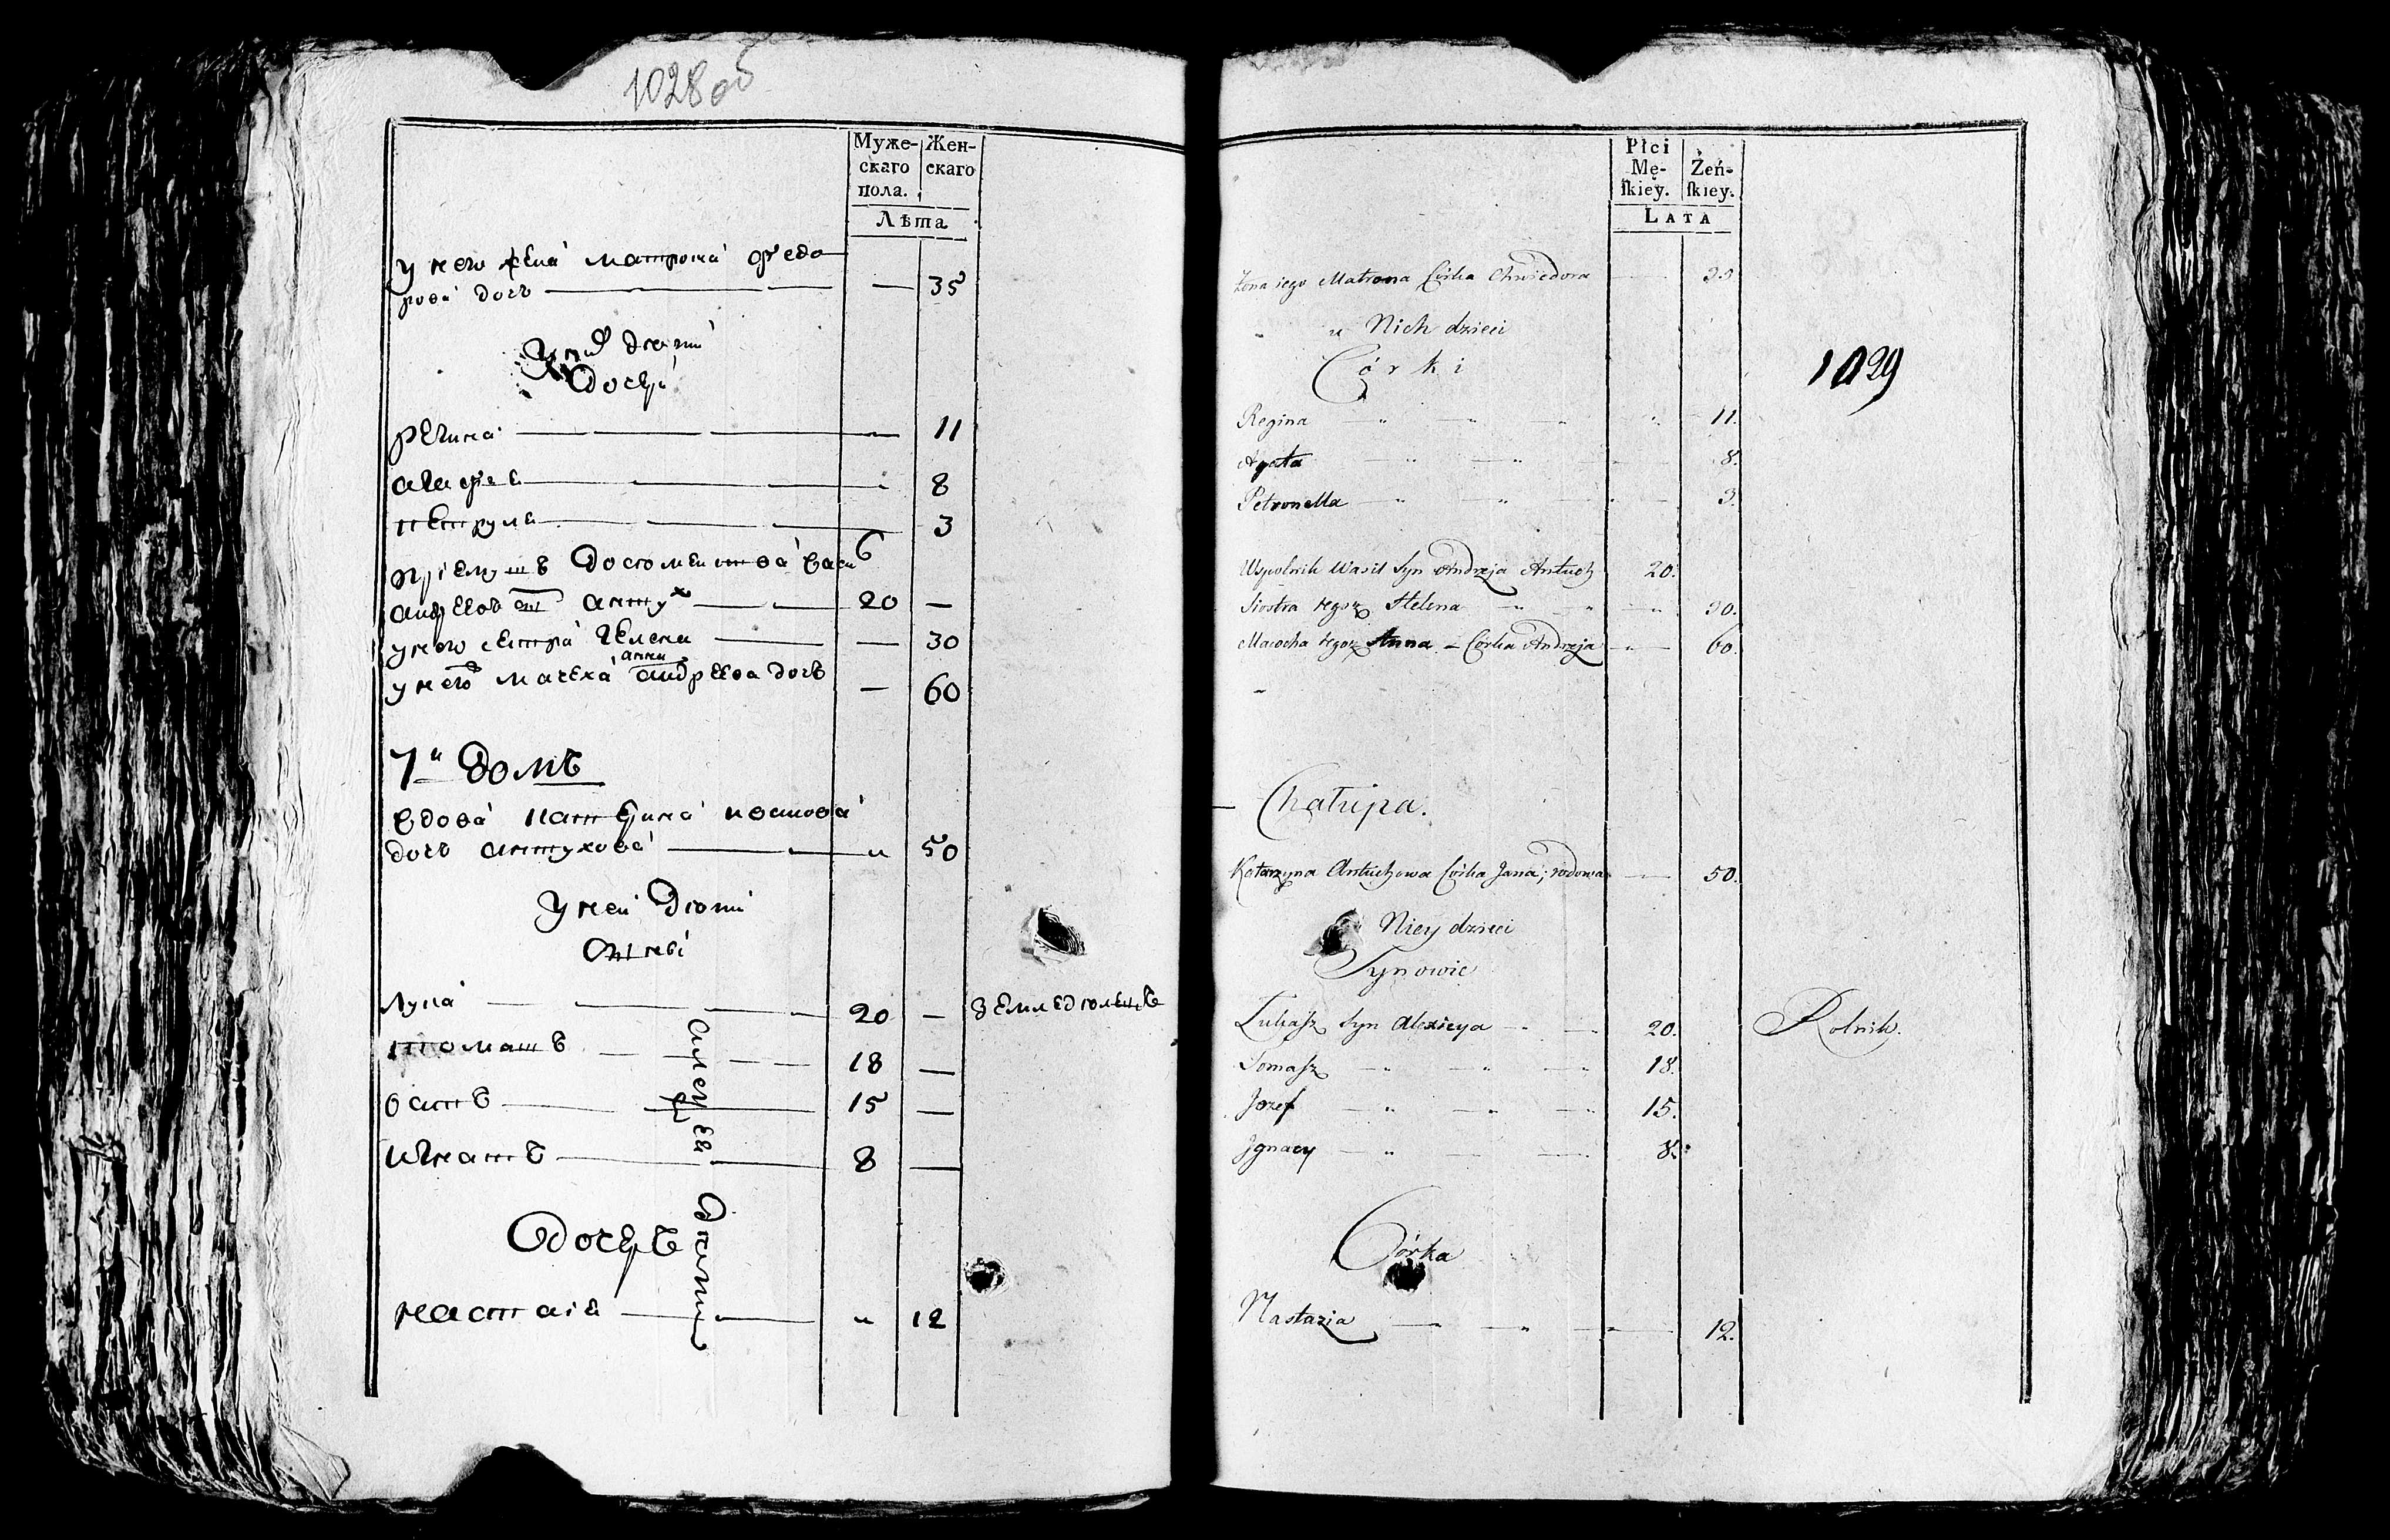 1028об
Муже-
скаго
пола.
Жен-
скаго
Лѣта
у него жена матрона федо
рова дочъ — — 35
у нихъ дѣти
Дочери
регина — — 11
агафея — — 8
петруля — — 3
приемышъ достоменства васи
андреевъ сынъ антух — 20 —
у него сестра гелена — — 30
анна
у него мачеха андреева дочъ — 60
7й домъ
вдова катерина иванова
дочъ антухова — „ 50
У неи дѣти
Сынови
лука — 20 — земледѣлецъ
томашъ — 18 —
осипъ — 15 —
игнатъ — 8 —
алексеевы дѣти
Дочеръ
настазя — „ 12
Płci
Mę-
ſkiey.
Żeń-
ſkiey.
LATA
Żona iego Matrona Córka Chwiedora — 35
u Nich dzieci
Córki
1029
Regina — „ — „ — „ „ — 11.
Agata — „ — „ — 8.
Petronella — „ — „ — „ — 3.
Wspolnik Wasil Syn Andrzeja Antuch 20.
Siostra tegoż Helena — „ — „ — „ 30.
Macocha tegoż Anna – Córka Andrzeja — „ — 60.
Chałupa.
Katarzyna Antuchowa Córka Jana; wdowa — 50.
u Niey dzieci
Synowie
Łukasz Syn Alexieya — „ — 20. Rolnik.
Tomasz — „ — „ — „ 18.
Jozef — „ — „ — „ 15.
Jgnacy — „ — — 8.
Córka
Nastazia — „ — „ — „ — 12.